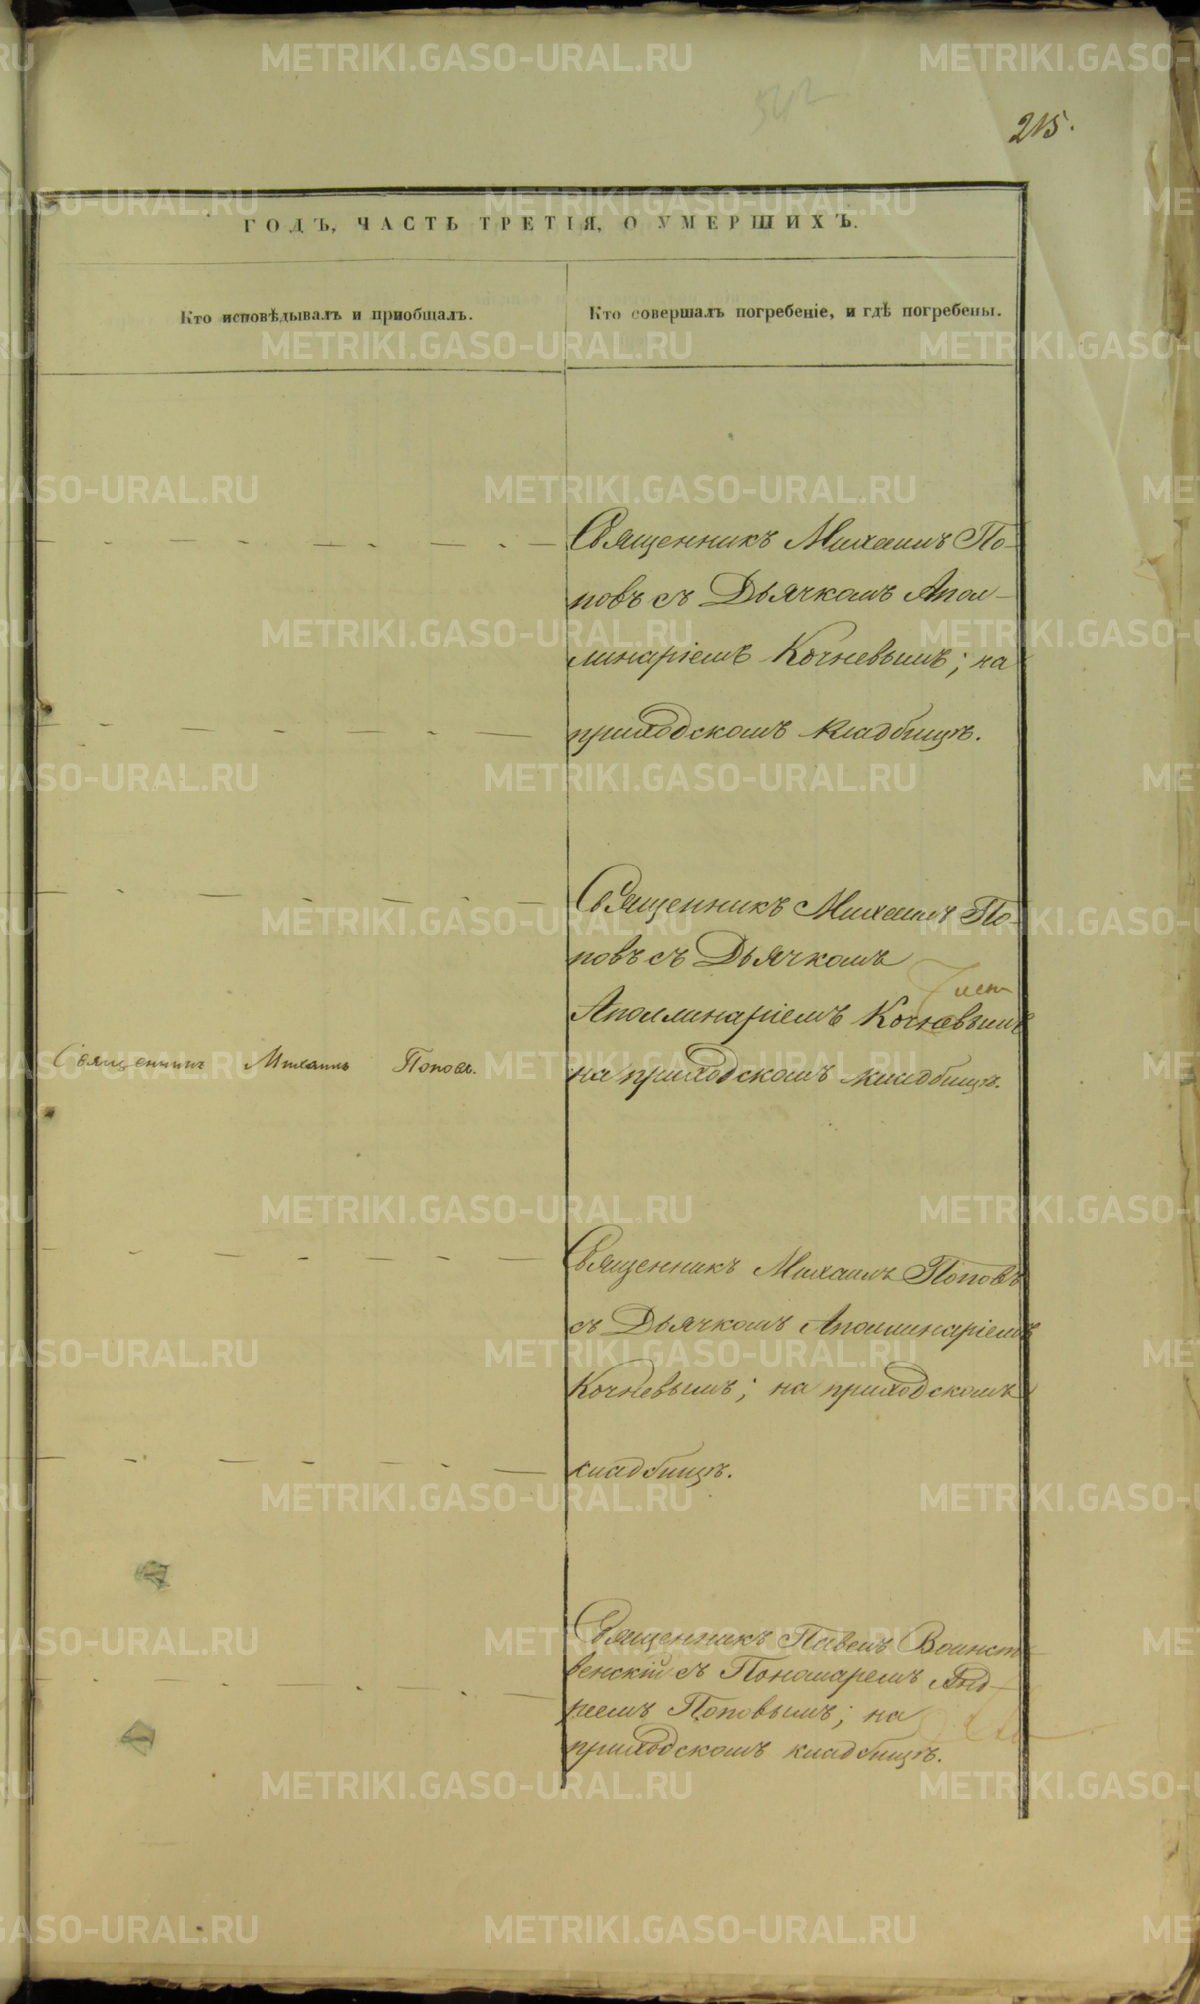 215.
ГОДЪ, ЧАСТЬ ТРЕТІЯ, О УМЕРШИХЪ.
Кто исповѣдывалъ и приобщалъ.
Кто совершалъ погребеніе, и гдѣ погребены.
Священникъ Михаилъ По-
повъ съ Дьячкомъ Апол-
линаріемъ Кочневымъ; на
приходскомъ кладбищѣ.
Священникъ Михаилъ По-
повъ съ Дьячкомъ
Аполлинаріемъ Кочневымъ
Священникъ Михаилъ Поповъ.
на приходскомъ кладбищѣ.
Священникъ Михаилъ Поповъ
съ Дьячкомъ Аполлинаріемъ
Кочневымъ; на приходскомъ
кладбищѣ.
Священникъ Павелъ Воинст-
венскій съ Пономаремъ Анд-
реемъ Поповымъ; на
приходскомъ кладбищѣ.
METRIKI.GASO-URAL.RU